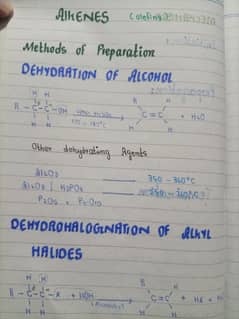 AlKENES (olefins)
Methods of Preparation
DEHYDRATION OF ALCOHOL
H H
R - C - C - OH → C = C + H2O
H H
Other dehydrating Agents
Al2O3 350 - 360°C
Al2O3 | H3PO4
P2O5
DEHYDROHALOGINATION OF ALKYL
HALIDES
H H
R - C - C - X + KOH → C = C
(Alcoholic)
H H